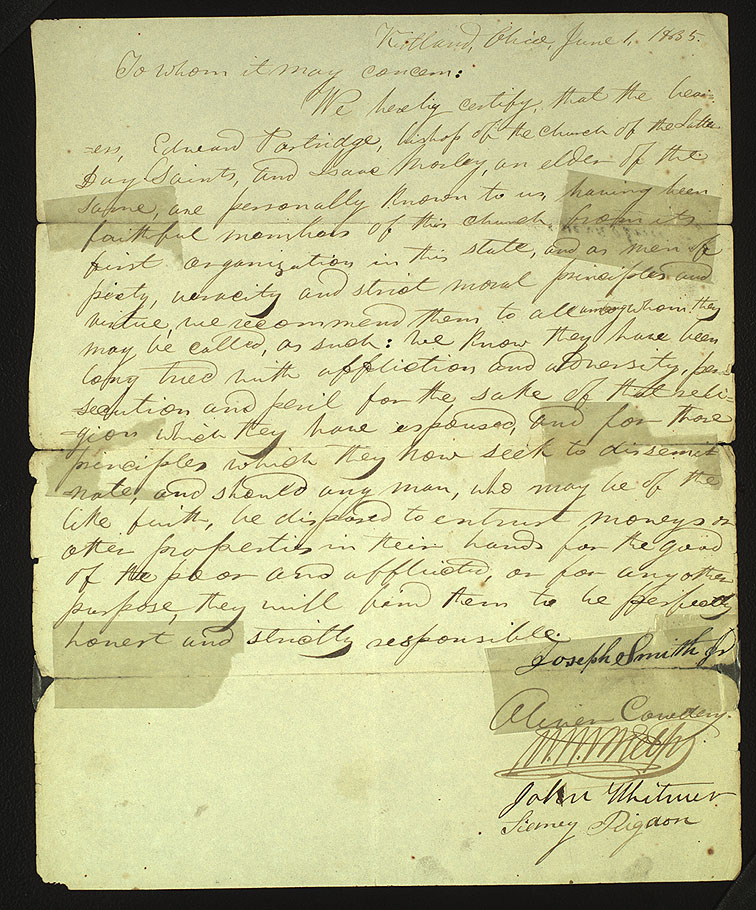 Kirtland, Ohio, June 1, 1835.
To whom it may concern:
We hereby certify, that the bear-
-ers, Edward Partridge, bishop of the church of the Latter
Day Saints, and Isaac Morley, an elder of the
same, are personally known to us, having been
faithful members of this church from its
first organization in this state, and as men of
piety, veracity and strict moral principles and
virtue, we recommend them to all among whom they
may be called, as such: We know they have been
long tried with affliction and adversity, per-
-secution and peril for the sake of that reli-
-gion which they have espoused, and for those
principles which they now seek to dissemi-
-nate, and should any man, who may be of the
like faith, be disposed to entrust moneys or
other properties in their hands for the good
of the poor and afflicted, or for any other
purpose, they will find them to be perfectly
honest and strictly responsible.
Joseph Smith Jr
Oliver Cowdery.
W. W. Phelps
John Whitmer
Sidney Rigdon